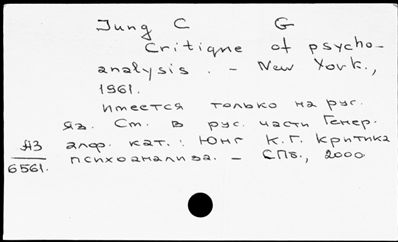 Jung C G
Critique of psycho-
analysis. - New York.,
1961.
имеется только на рус.
яз. См. в рус. части Генер.
алф. кат.: Юнг К.Г. Критика
А3
6561. психоанализа. - СПб., 2000